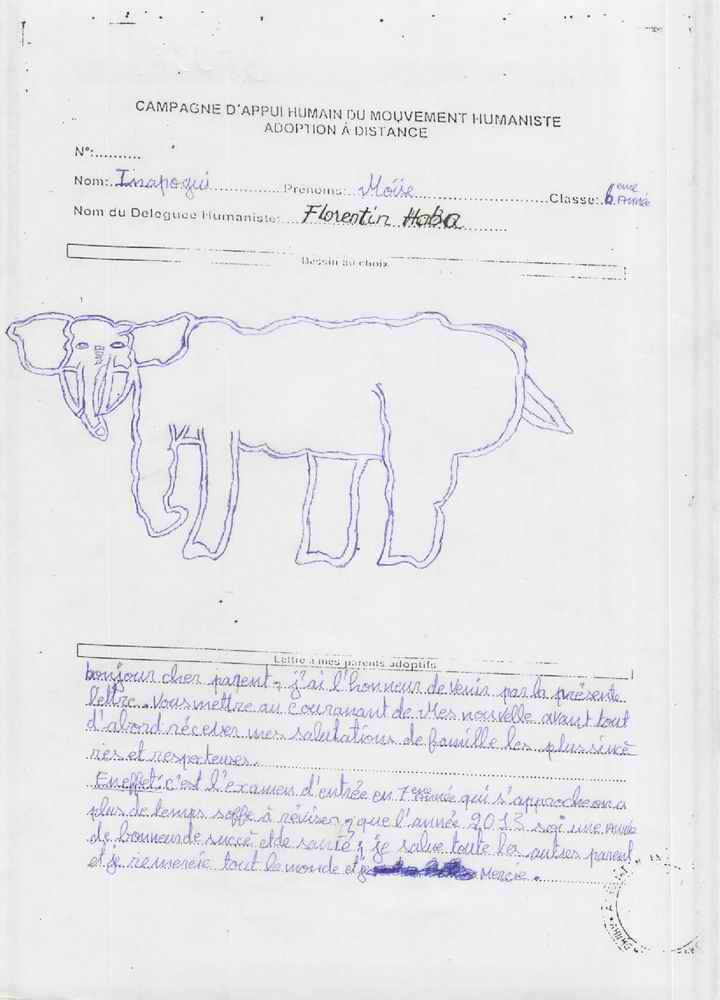 CAMPAGNE D'APPUI HUMAIN DU MOUVEMENT HUMANISTE
ADOPTION À DISTANCE
N°:..........
Nom: Inapogui Prénoms: Moïse Classe: 6ème Année
Nom du Deleguee Humaniste: Florentin Haba
Dessin au choix
Lettre à mes parents adoptifs
bonjour cher parent, j'ai l'honneur de venir par la présente
lettre. Vous mettre au couranant de Mes nouvelle avant tout
d'abord réceser mes salutations de famille les plus sincè
res et respecteuses.
En effet; c'est l'examen d'entrée en 7ème Année qui s'approche on a
plus de temps soffe à réviser, que l'année 2013 soi une Année
de bonneur de succè et de santé; je salue toute les autres parent
et je remercie tout le monde et je Mercie.